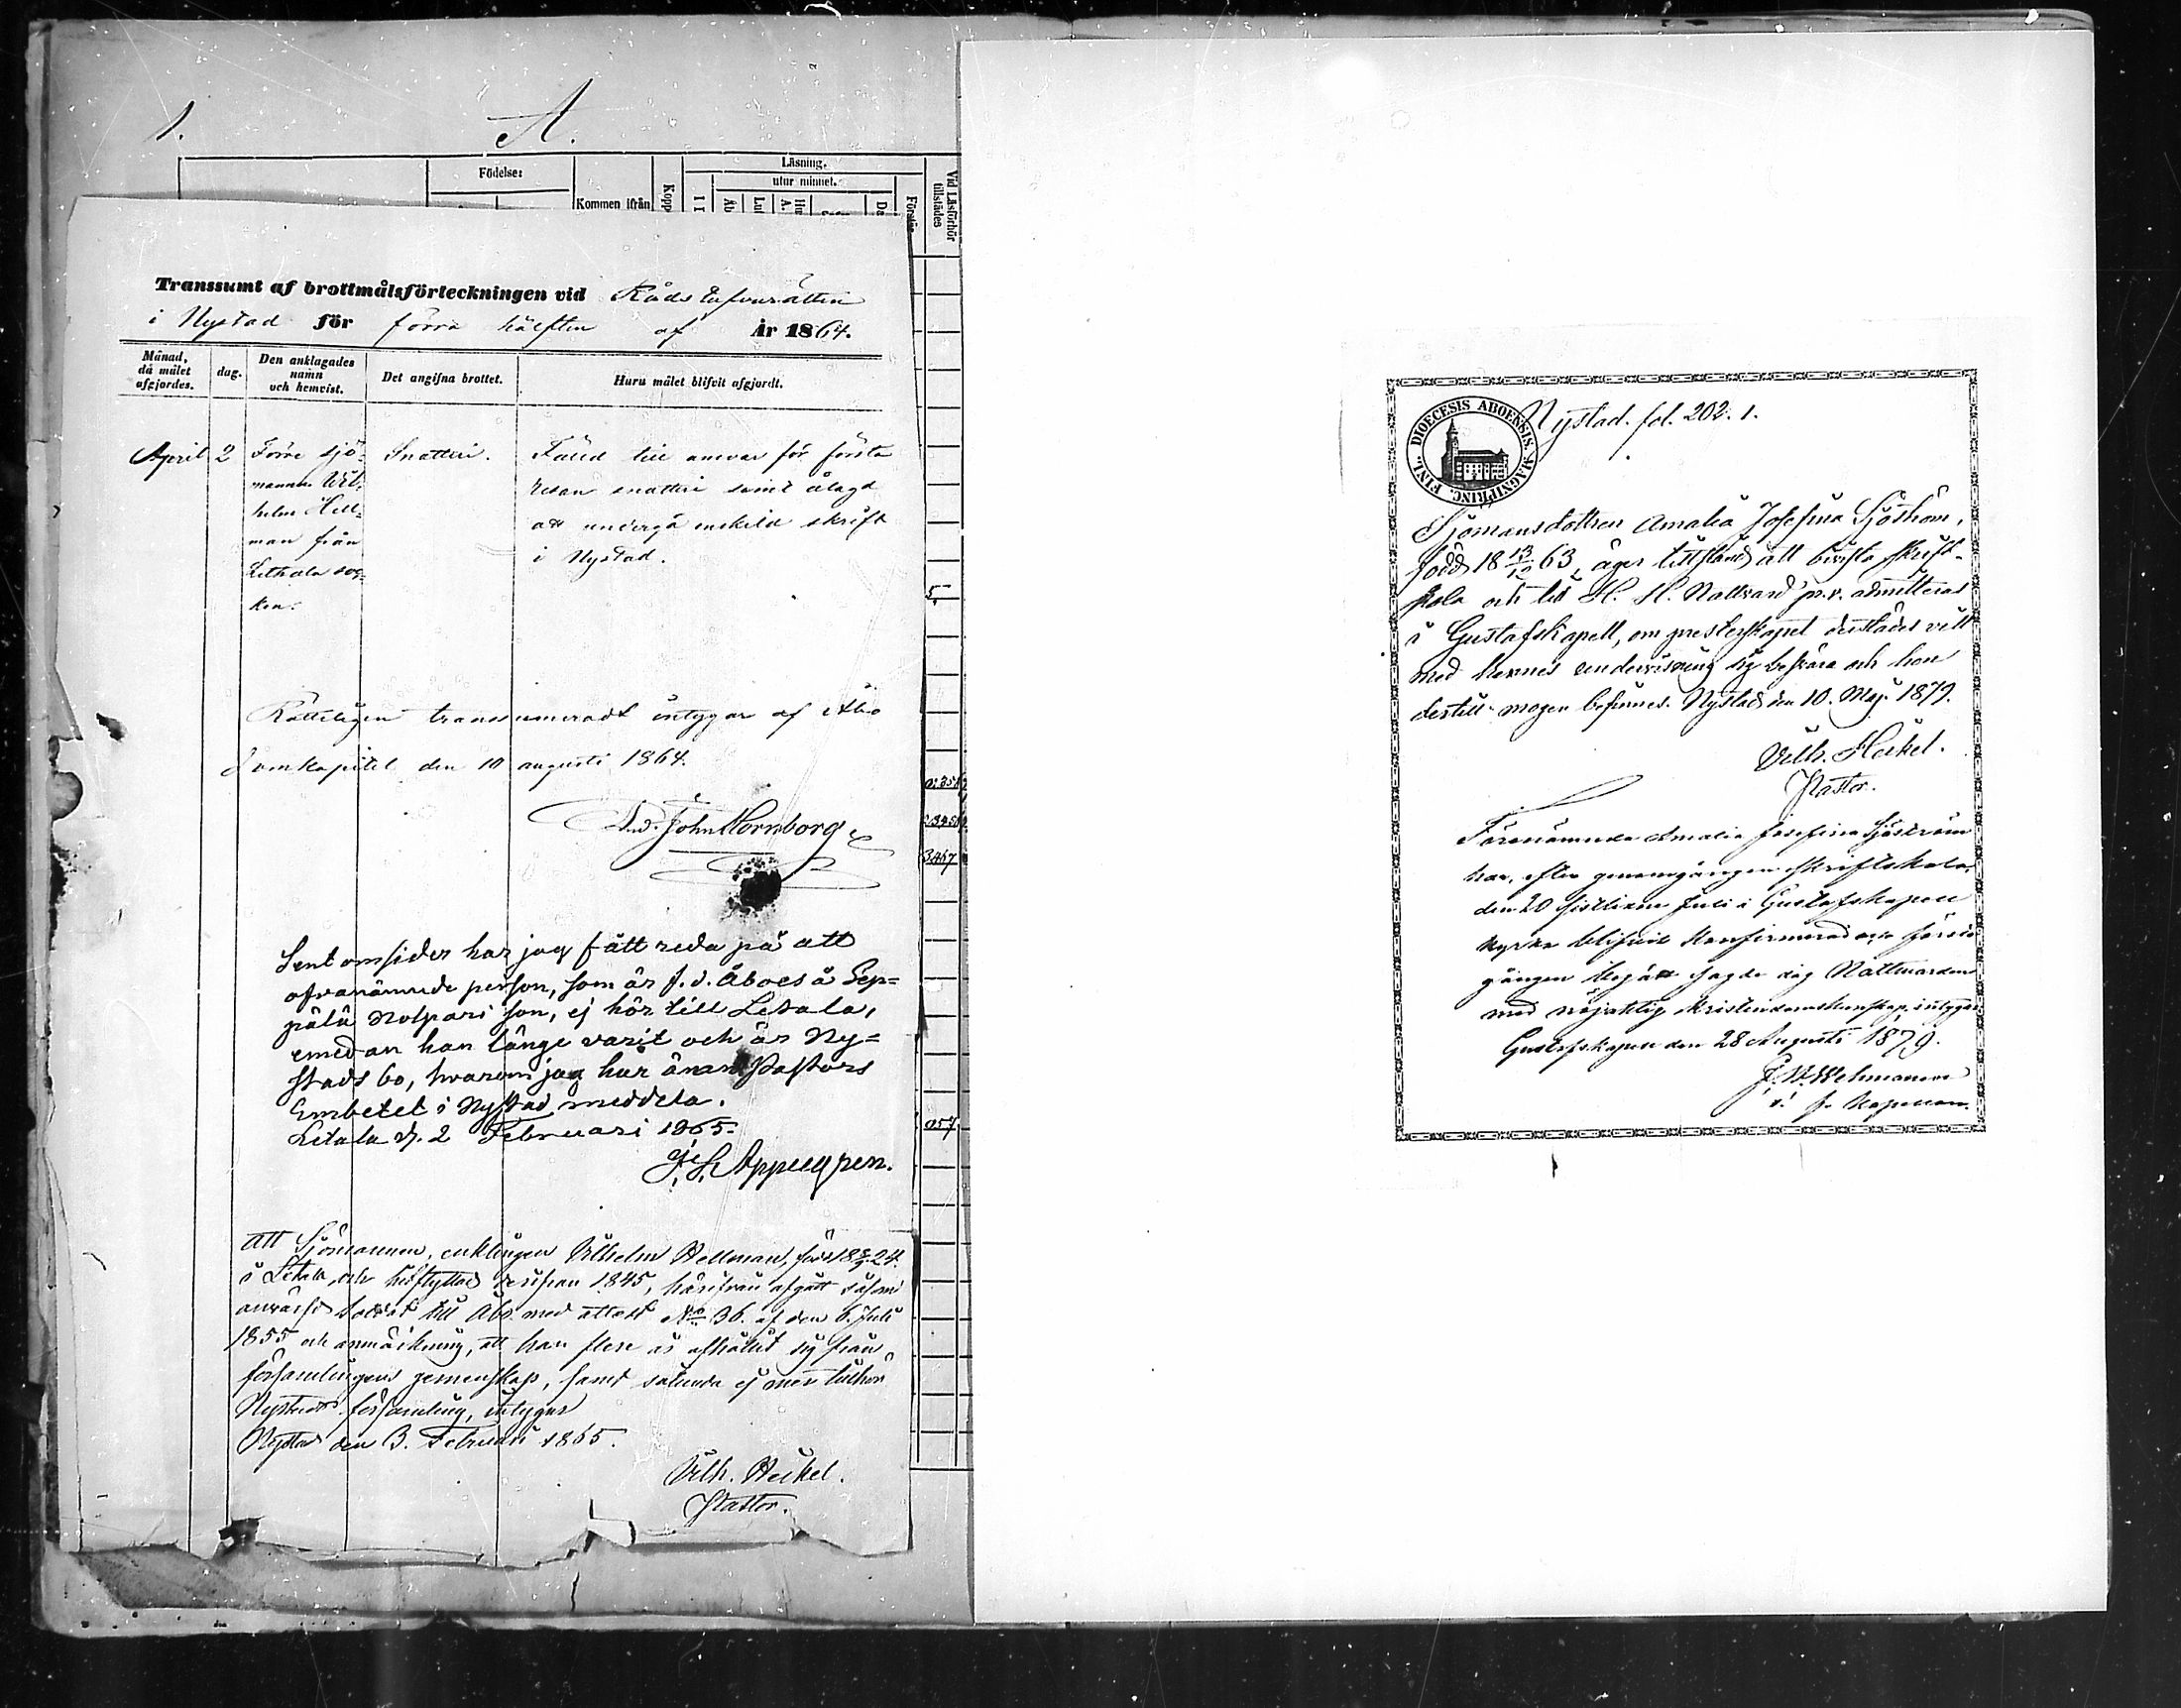 1.
A.
Födelse:
Kommen ifrån
Kopp
Läsning.
utur minnet.
I I
Ab
Lut
Hu
A.
Da
Förstår
Vid Läsförhör
tillstädes
Transsumt af brottmålsförteckningen vid Rådstufvurätten
i Nystad för förra hälften af År 1864.
Månad,
då målet
afgjordes.
dag.
Den anklagades
namn
och hemvist.
Det angifna brottet.
Huru målet blifvit afgjordt.
April 2 Förre sjö- Snatteri. Fälld till answar för första
mannen Wil- resan snatteri samt ålagd
helm Hell- att undergå enskild skrift
man från i Nystad.
Lethala soc-
ken.
5
Rätteligen transsumeradt intygar af Åbo
Domkapitel den 10 augusti 1864.
And. John Hornborg
3467
057
Sent omsider har jag fått reda på att
ofvanämnde person, som är f.d. Åboes å Sep-
pälä Nolpari son, ej hör till Letala,
emedan han länge varit och är Ny-
stads bo, hvarom jag har äran Pastors
Embetet i Nystad meddela.
Letala d. 2 Februari 1865.
J. L. Appelgren.
Att Sjömannen, enklingen Vilhelm Hellman, född 18 24.
i Letala, och hitflyttad derifrån 1845, härifrån afgått såsom
anvärfd Soldat till Åbo med attest No 36. af den 6. Juli
1855 och anmärkning, att han flere år afhållit sig från
församlingens gemenskap, samt sålunda ej mer tillhör
Nystads församling, intygar
Nystad den 3. Februari 1865.
Vilh. Heikel.
Pastor.
DIOECESIS ABOENSIS. MAGNI PRINC. FINL.
Nystad. fol. 202. 1.
Sjömansdottren Amalia Josefina Sjöström,
född 18 13/12 63, äger tillstånd att bevista skrift-
skola och till H. H. Nattvard pr. v. admitteras
i Gustafs Kapell, om presterskapet derstädes vill
med hennes undervisning sig besvära och hon
dertill mogen befinnes. Nystad den 10. Maj 1879.
Vilh. Heikel.
Pastor.
Förenämnda Amalia Josefina Sjöström
har, efter genomgången skriftskola,
den 20 sistlidne Juli i Gustafs Kapell
kyrka blifvit konfirmerad och första
gången begått sagde dag Nattvarden
med nöjaktig kristendomskunskap, intygar
Gustafs kapell den 28 Augusti 1879.